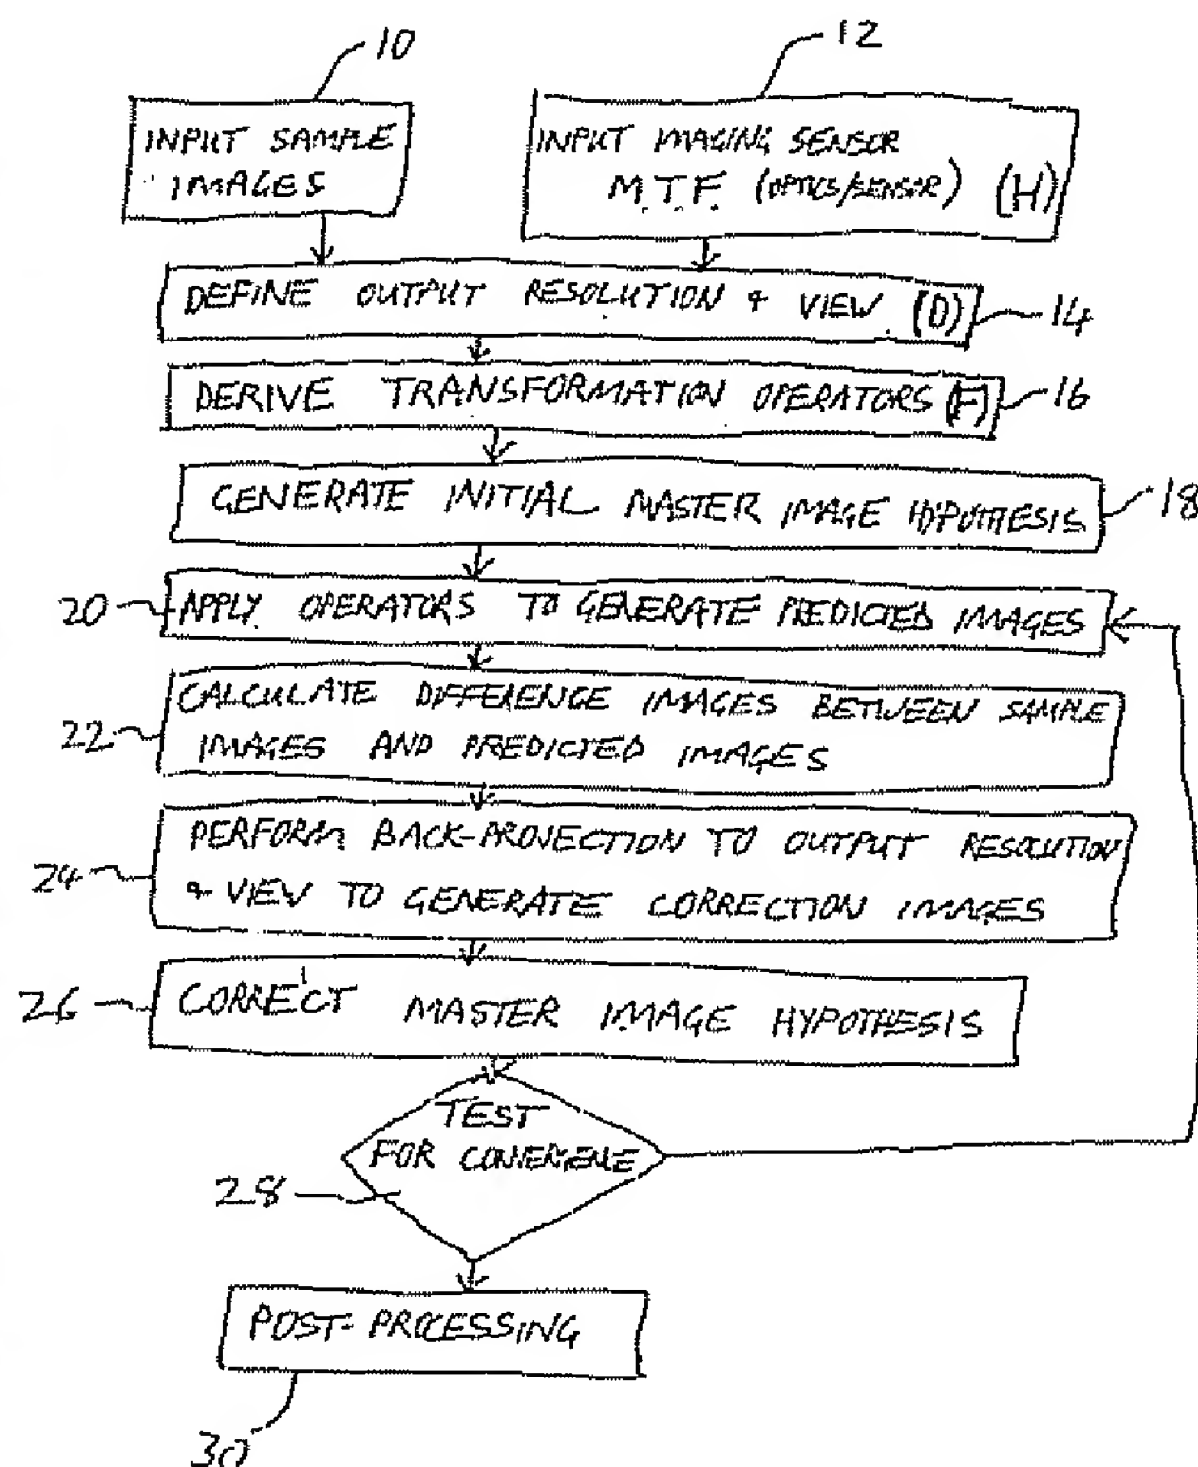 10
12
INPUT SAMPLE
IMAGES
INPUT IMAGING SENSOR
M.T.F. (OPTICS/SENSOR) (H)
DEFINE OUTPUT RESOLUTION + VIEW (D)
14
DERIVE TRANSFORMATION OPERATORS (F)
16
GENERATE INITIAL MASTER IMAGE HYPOTHESIS
18
20
APPLY OPERATORS TO GENERATE PREDICTED IMAGES
CALCULATE DIFFERENCE IMAGES BETWEEN SAMPLE
22
IMAGES AND PREDICTED IMAGES
PERFORM BACK-PROJECTION TO OUTPUT RESOLUTION
24
+ VIEW TO GENERATE CORRECTION IMAGES
26
CORRECT MASTER IMAGE HYPOTHESIS
TEST
FOR CONVERGENCE
28
POST-PROCESSING
30